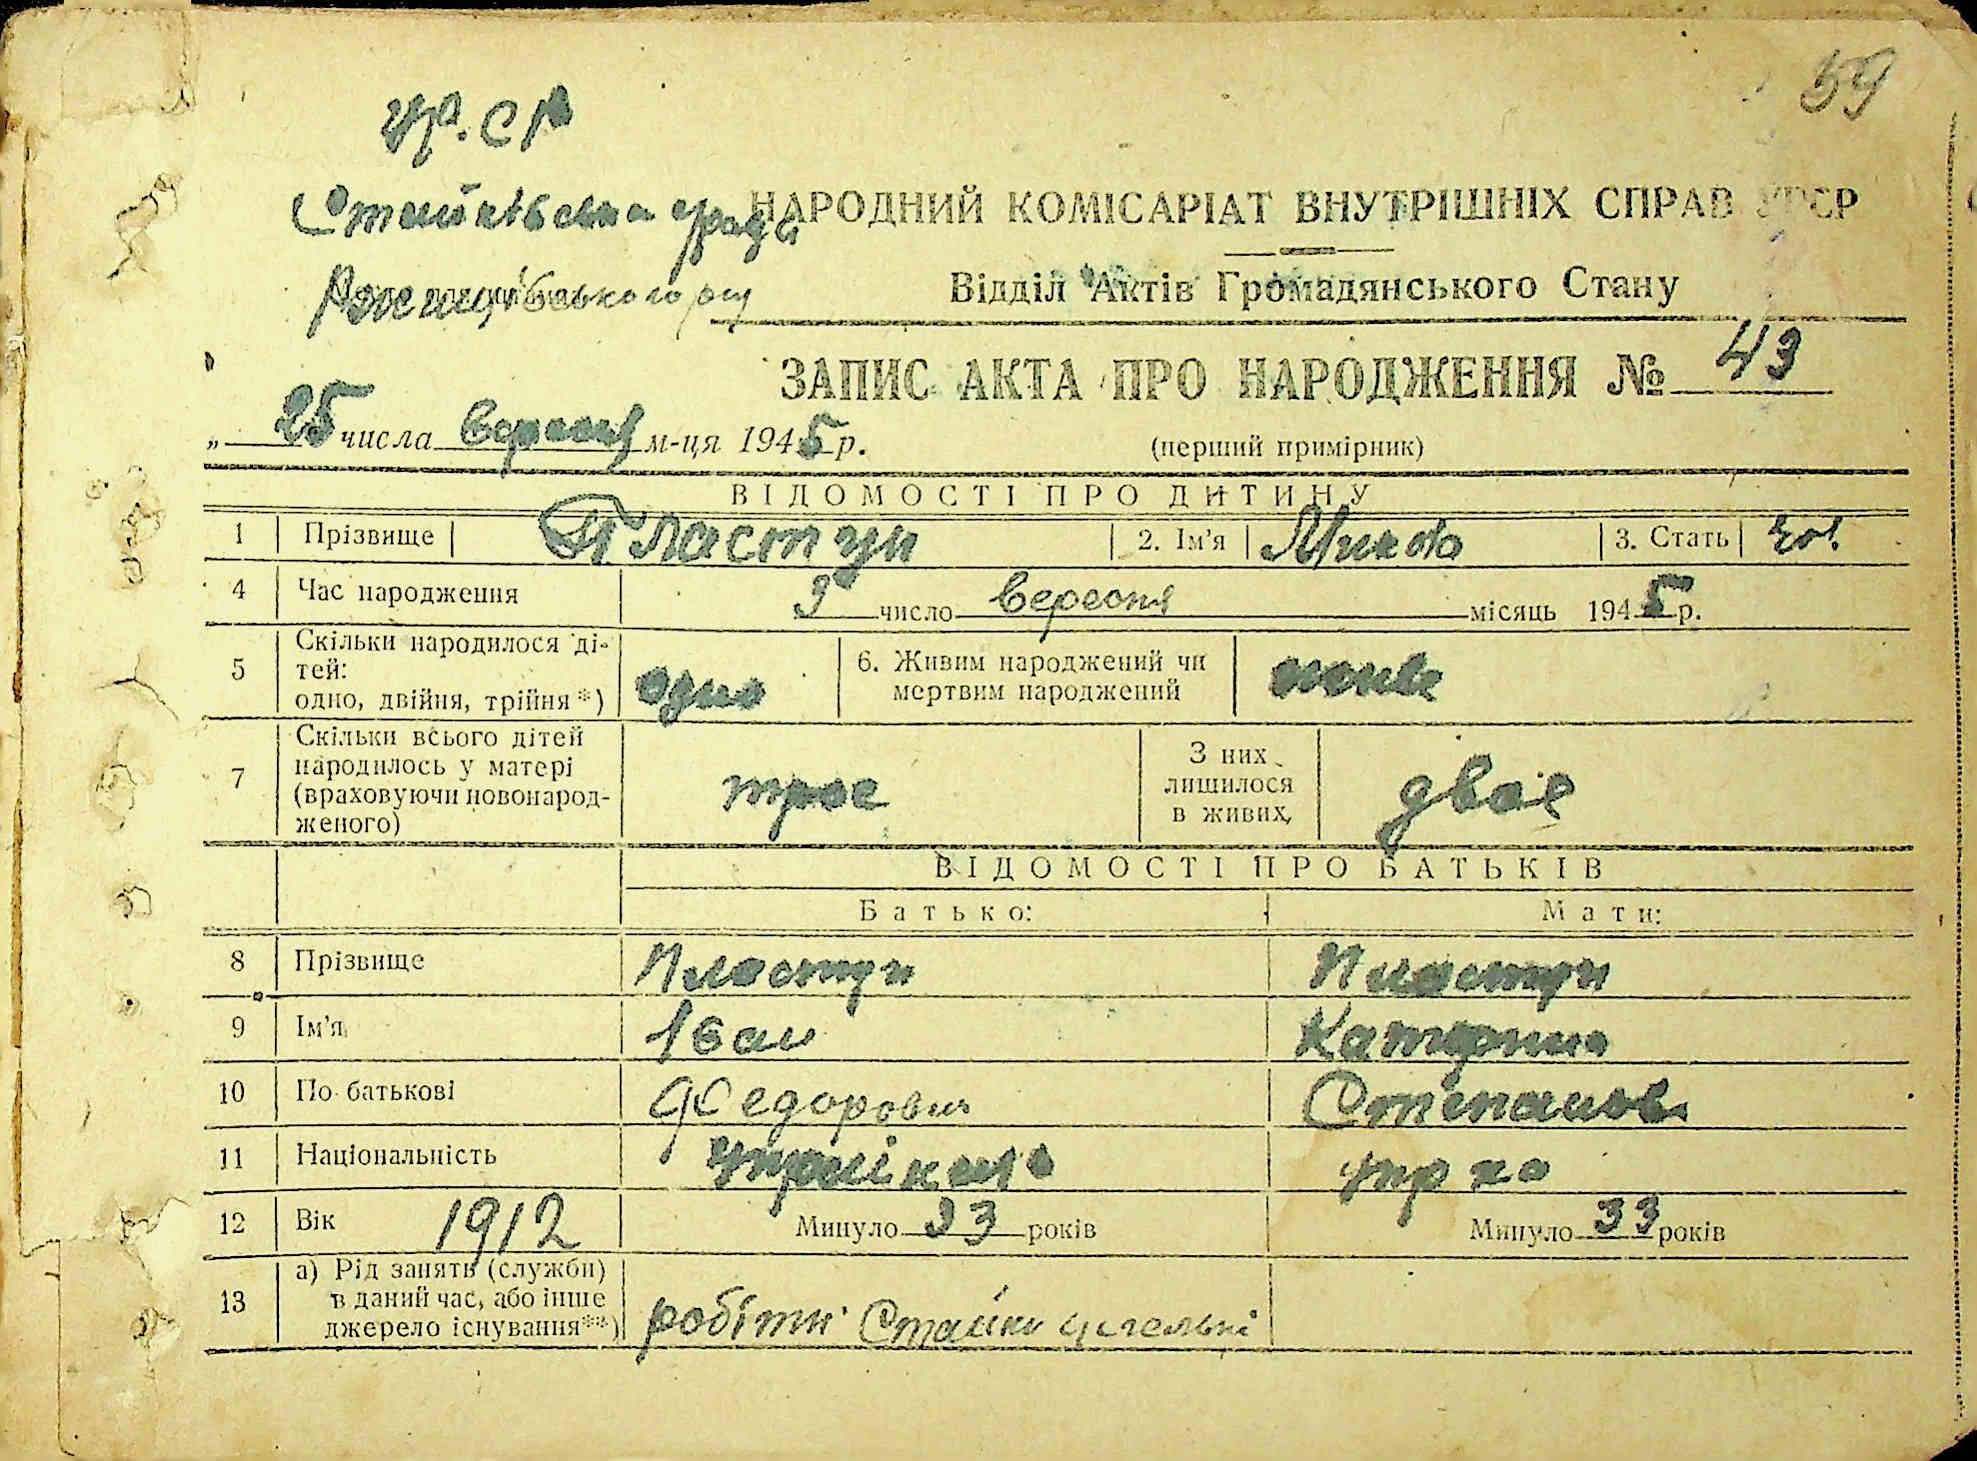 59
Ур. СР
Стайківська рада
Ржищівського р-ну
НАРОДНИЙ КОМІСАРІАТ ВНУТРІШНІХ СПРАВ УРСР
Відділ Актів Громадянського Стану
ЗАПИС АКТА ПРО НАРОДЖЕННЯ № 43
„ 25 числа вересня м-ця 1945 р.
(перший примірник)
ВІДОМОСТІ ПРО ДИТИНУ
1 Прізвище Пластун 2. Ім'я Микола 3. Стать чол.
4 Час народження 3 число вересня місяць 1945 р.
5 Скільки народилося ді-
тей:
одно, двійня, трійня*) одно 6. Живим народжений чи
мертвим народжений живе
7 Скільки всього дітей
народилось у матері
(враховуючи новонарод-
женого) троє З них
лишилося
в живих двоє
ВІДОМОСТІ ПРО БАТЬКІВ
Батько: Мати:
8 Прізвище Пластун Пластун
9 Ім'я Іван Катерина
10 По батькові Федорович Степанов
11 Національність українець укр ка
12 Вік 1912 Минуло 33 років Минуло 33 років
13 а) Рід занять (служби)
в даний час, або інше
джерело існування**) робітн Стайки цегельні